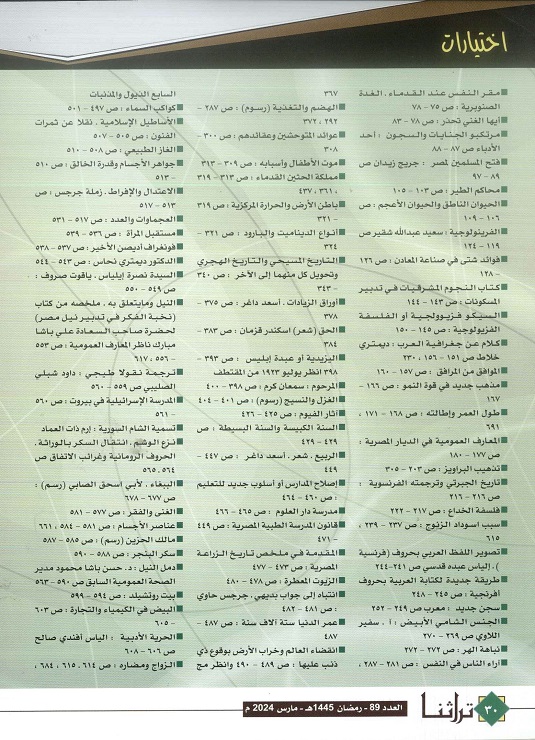 اختيارات
مقر النفس عند القدماء . الغدة
الصنوبرية : ص ٧٥ - ٧٨
أيها الغني تحذر : ص ٧٨ - ٨٣
مرتكبو الجنايات والسجون : أحد
الأدباء ص ٨٧ - ٨٨
فتح المسلمين لمصر : جريج زيدان ص
٨٩ - ٩٧
محاكم الطير : ص ١٠٣ - ١٠٥
الحيوان الناطق والحيوان الأعجم : ص
١٠٦ - ١٠٩
الفرينولوجية : سعيد عبدالله شقير ص
١١٩ - ١٢٤
فوائد شتى في صناعة المعادن : ص ١٢٦
- ١٢٨
كتاب النجوم المشرقيات في تدبير
المسكونات : ص ١٤٣ - ١٤٤
السيكو فزيولوجية أو الفلسفة
الفزيولوجية : ص ١٤٥ - ١٥٠
كلام عن جغرافية العرب : ديمتري
خلاط ص ١٥١ - ١٥٦ ، ٢٣٠
الموافق من المرافق : ص ١٥٧ - ١٦٠
مذهب جديد في قوة النمو : ص ١٦٦ -
١٦٧
طول العمر وإطالته : ص ١٦٨ - ١٧١ ،
٦٩١
المعارف العمومية في الديار المصرية :
ص ١٧٧ - ١٨٠
تذهيب البراويز : ص ٢٠٣ - ٢٠٥
تاريخ الجبرتي وترجمته الفرنسوية :
ص ٢١٦ - ٢١٦
فلسفة الخداع : ص ٢١٧ - ٢٢٢
سبب اسوداد الزنوج : ص ٢٣٧ - ٢٣٩ ،
٦١٥
تصوير اللفظ العربي بحروف (فرنسية
) . إلياس عبده قدسي ص ٢٤١-٢٤٤
طريقة جديدة لكتابة العربية بحروف
أفرنجية : ص ٢٤٥ - ٢٤٨
سجن جديد : معرب ص ٢٤٩ - ٢٥٢
الجنس الشامي الأبيض : أ . سفير
اللاوي ص ٢٦٩ - ٢٧٠
نباهة الهر : ص ٢٧٢ - ٢٧٢
آراء الناس في النفس : ص ٢٨١ - ٢٨٧ ،
٣٦٧
الهضم والتغذية (رسوم) : ص ٢٨٧ -
٢٩٢ ، ٣٧٢
عوائد المتوحشين وعقائدهم : ص ٣٠٠ -
٣٠٨
موت الأطفال وأسبابه : ص ٣٠٩ - ٣١٣
مملكة الحثين القدماء : ص ٣١٣ - ٣١٩
، ٣٦١ ، ٤٣٧
باطن الأرض والحرارة المركزية : ص ٣١٩
- ٣٢١
أنواع الديناميت والبارود : ص ٣٢١ -
٣٢٤
التاريخ المسيحي والتاريخ الهجري
وتحويل كل منهما إلى الآخر : ص ٣٤٠
- ٣٤٣
أوراق الزيادات . أسعد داغر : ص ٣٧٥ -
٣٧٨
الحق (شعر) اسكندر قزمان : ص ٣٨٣-
٣٨٤
اليزيدية أو عبدة إبليس : ص ٣٩٣ -
٣٩٨ انظر يوليو ١٩٢٣ من المقتطف
المرحوم . سمعان كرم : ص ٣٩٨ - ٤٠٠
الغزل والنسيج (رسوم) : ص ٤٠١ - ٤٠٤
آثار الفيوم : ص ٤٢٥ - ٤٢٦
السنة الكبيسة والسنة البسيطة : ص
٤٢٩ - ٤٢٩
الربيع . شعر . أسعد داغر : ص ٤٤٧ -
٤٤٩
إصلاح المدارس أو أسلوب جديد للتعليم
: ص ٤٦٠ - ٤٦٤
مدرسة دار العلوم : ص ٤٦٥ - ٤٦٦
قانون المدرسة الطبية المصرية : ص ٤٤٩
- ٤٧١
المقدمة في ملخص تاريخ الزراعة
المصرية : ص ٤٧٣ - ٤٧٧
الزيوت المعطرة : ص ٤٧٨ - ٤٨٠
انتباه إلى جواب بديهي . جرجس حاوي
: ص ٤٨١ - ٤٨٢
عمر الدنيا ستة آلاف سنة : ص ٤٨٧ -
٤٨٧
انقضاء العالم وخراب الأرض بوقوع ذي
ذنب عليها : ص ٤٨٩ - ٤٩٠ وانظر مج
السابع الذيول والمذنبات
كواكب السماء : ص ٤٩٧ - ٥٠١
الأساطيل الإسلامية . نقلا عن ثمرات
الفنون : ص ٥٠٥ - ٥٠٧
الغاز الطبيعي : ص ٥٠٨ - ٥١٠
جواهر الأجسام وقدرة الخالق : ص ٥١٠
- ٥١٣
الاعتدال والإفراط . زملة جرجس : ص
٥١٣ - ٥١٧
العجماوات والعدد : ص ٥١٧ - ٥٣١
مستقبل المرأة : ص ٥٣٦ - ٥٣٩
فونغراف أديصن الأخير : ص ٥٣٧ - ٥٣٨
الدكتور ديمتري نحاس : ص ٥٤٣ - ٥٤٤
السيدة نصرة إيلياس . ياقوت صروف :
ص ٥٤٩ - ٥٥٠
النيل ومايتعلق به . ملخصه من كتاب
(نخبة الفكر في تدبير نيل مصر)
لحضرة صاحب السعادة علي باشا
مبارك ناظر المعارف العمومية : ص ٥٥٣
- ٥٥٦ ، ٦١٧
ترجمة نقولا طيجي : داود شبلي
الصليبي ص ٥٥٩ - ٥٦٠
المدرسة الإسرائيلية في بيروت : ص ٥٦٠
- ٥٦١
تسمية الشام السورية : إرم ذات العماد
نزع الوشم . انتقال السكر بالوراثة .
الحروف الرومانية وغرائب الاتفاق ص
٥٦٤ . ٥٦٥
الببغاء . لأبي اسحق الصابي (رسم) :
ص ٦٧٧ - ٦٧٨
الغنى والفقر : ص ٥٧٧ - ٥٨١
عناصر الأجسام : ص ٥٨١ - ٥٨٤ ، ٦٦١
مالك الحزين (رسم) : ص ٥٨٥ - ٥٨٧
سكر البنجر : ص ٥٨٨ - ٥٩٠
دمل النيل : د. حسن باشا محمود مدير
الصحة العمومية السابق ص ٥٩٠ - ٥٦٣
بيت روتشيلد : ص ٥٩٤ - ٥٩٩
البيض في الكيمياء والتجارة : ص ٦٠٣
- ٦٠٥
الحرية الأدبية : الياس أفندي صالح
ص ٦٠٦ - ٦٠٨
الزواج ومضاره : ص ٦١٤ ، ٦١٥ ، ٦٨٤ ،
٣٠
تراثنا
العدد 89 - رمضان 1445هـ - مارس 2024 م